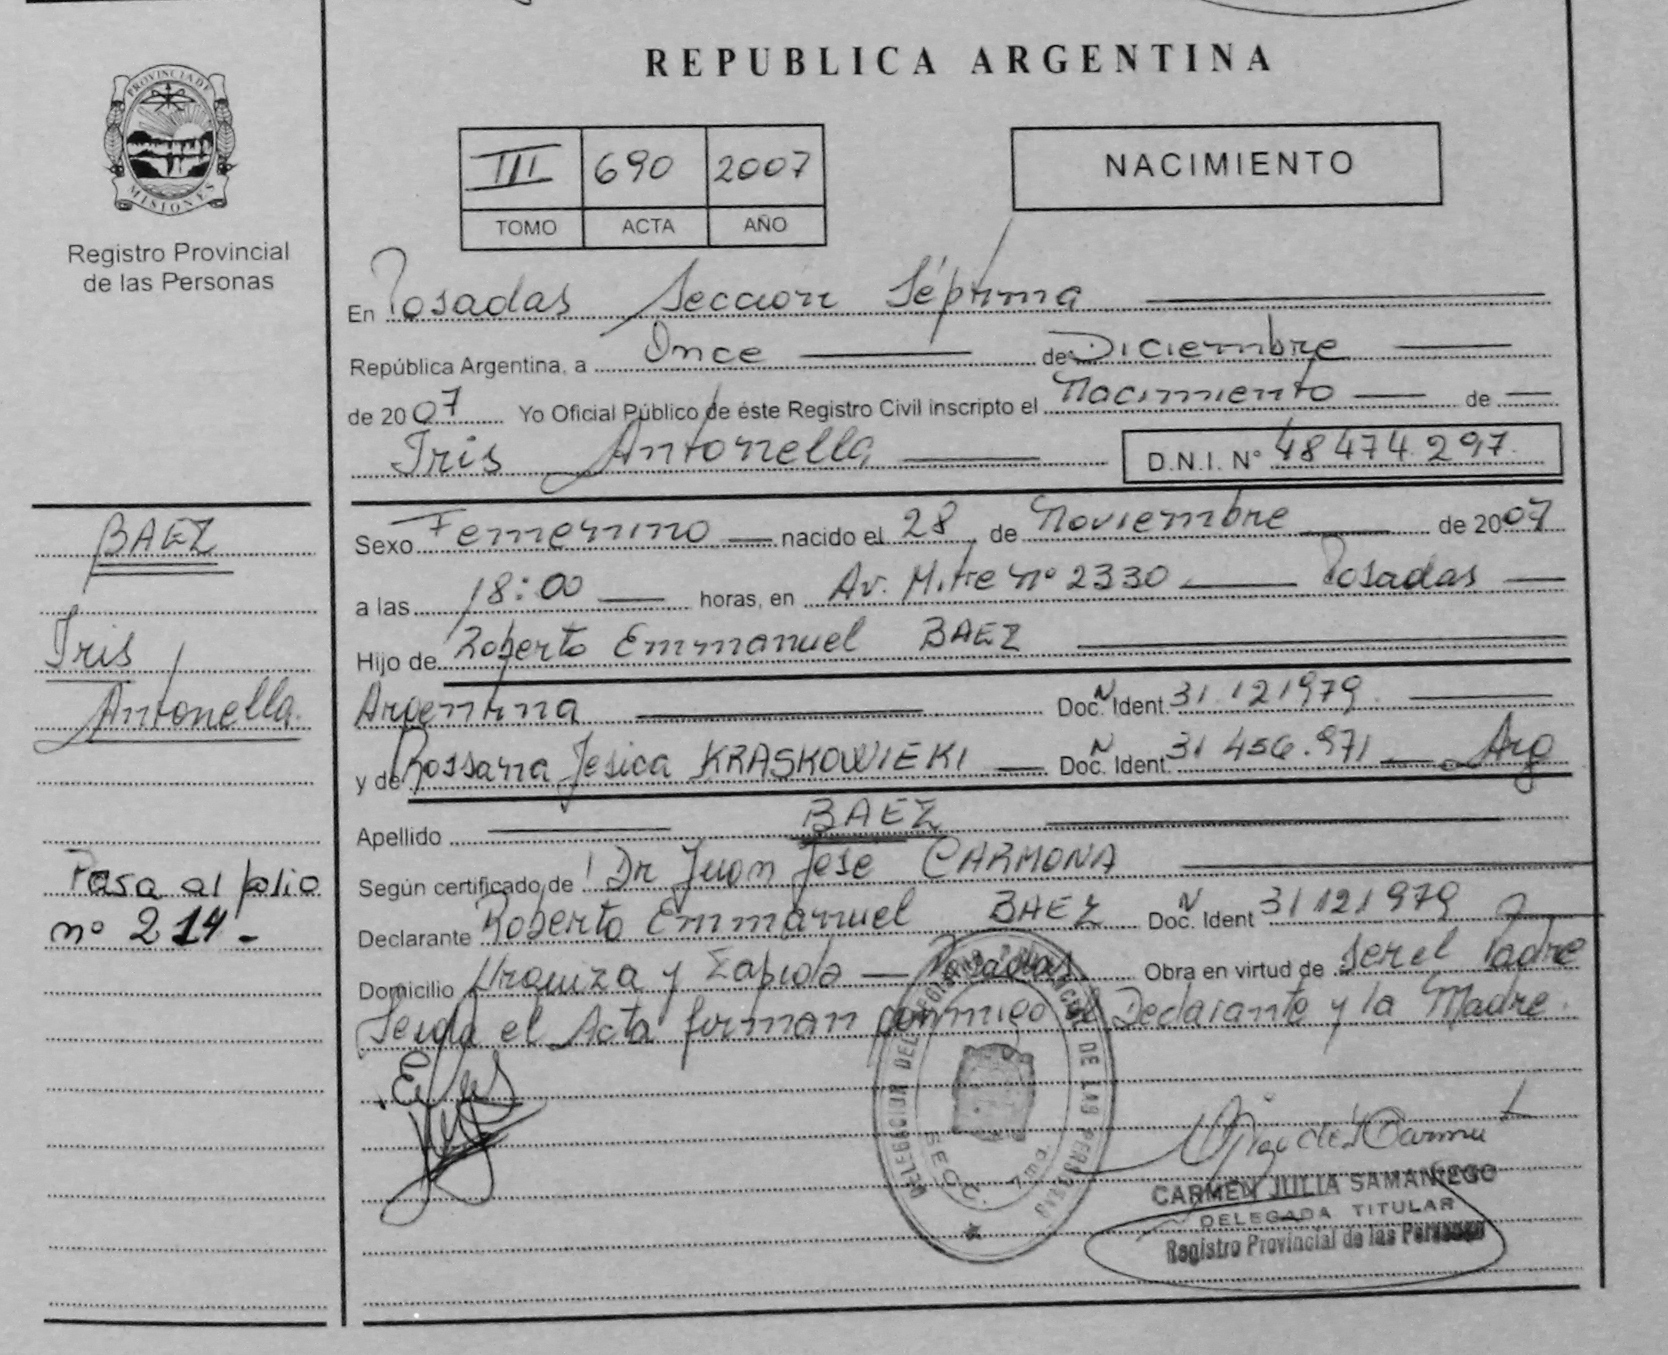 REPUBLICA ARGENTINA
PROVINCIA DE
MISIONES
Registro Provincial
de las Personas
III 690 2007
TOMO ACTA AÑO
NACIMIENTO
En Posadas Sección Séptima
República Argentina, a Once de Diciembre
de 2007 Yo Oficial Público de éste Registro Civil inscripto el Nacimiento de
Iris Antonella D.N.I. N° 48 474 297
BAEZ
Iris
Antonella.
Pasa al folio
nº 214-
Sexo Femenino nacido el 28 de Noviembre de 2007
a las 18:00 horas, en Av. Mitre nº 2330 Posadas
Hijo de Roberto Emmanuel BAEZ
Argentina Doc. N Ident. 31.121979.
y de Rossana Jesica KRASKOWIEKI Doc. N Ident. 31 456.971 Arg
Apellido BAEZ
Según certificado de Dr Juan José CARMONA
Declarante Roberto Emmanuel BAEZ Doc. N Ident 31121979
Domicilio Urquiza y Zapiola Posadas Obra en virtud de ser el Padre
Leida el Acta firman conmigo el Declarante y la Madre.
DELEGACION DEL REGISTRO PROVINCIAL DE LAS PERSONAS
SECC. 7ma.
CARMEN JULIA SAMANIEGO
DELEGADA TITULAR
Registro Provincial de las Personas